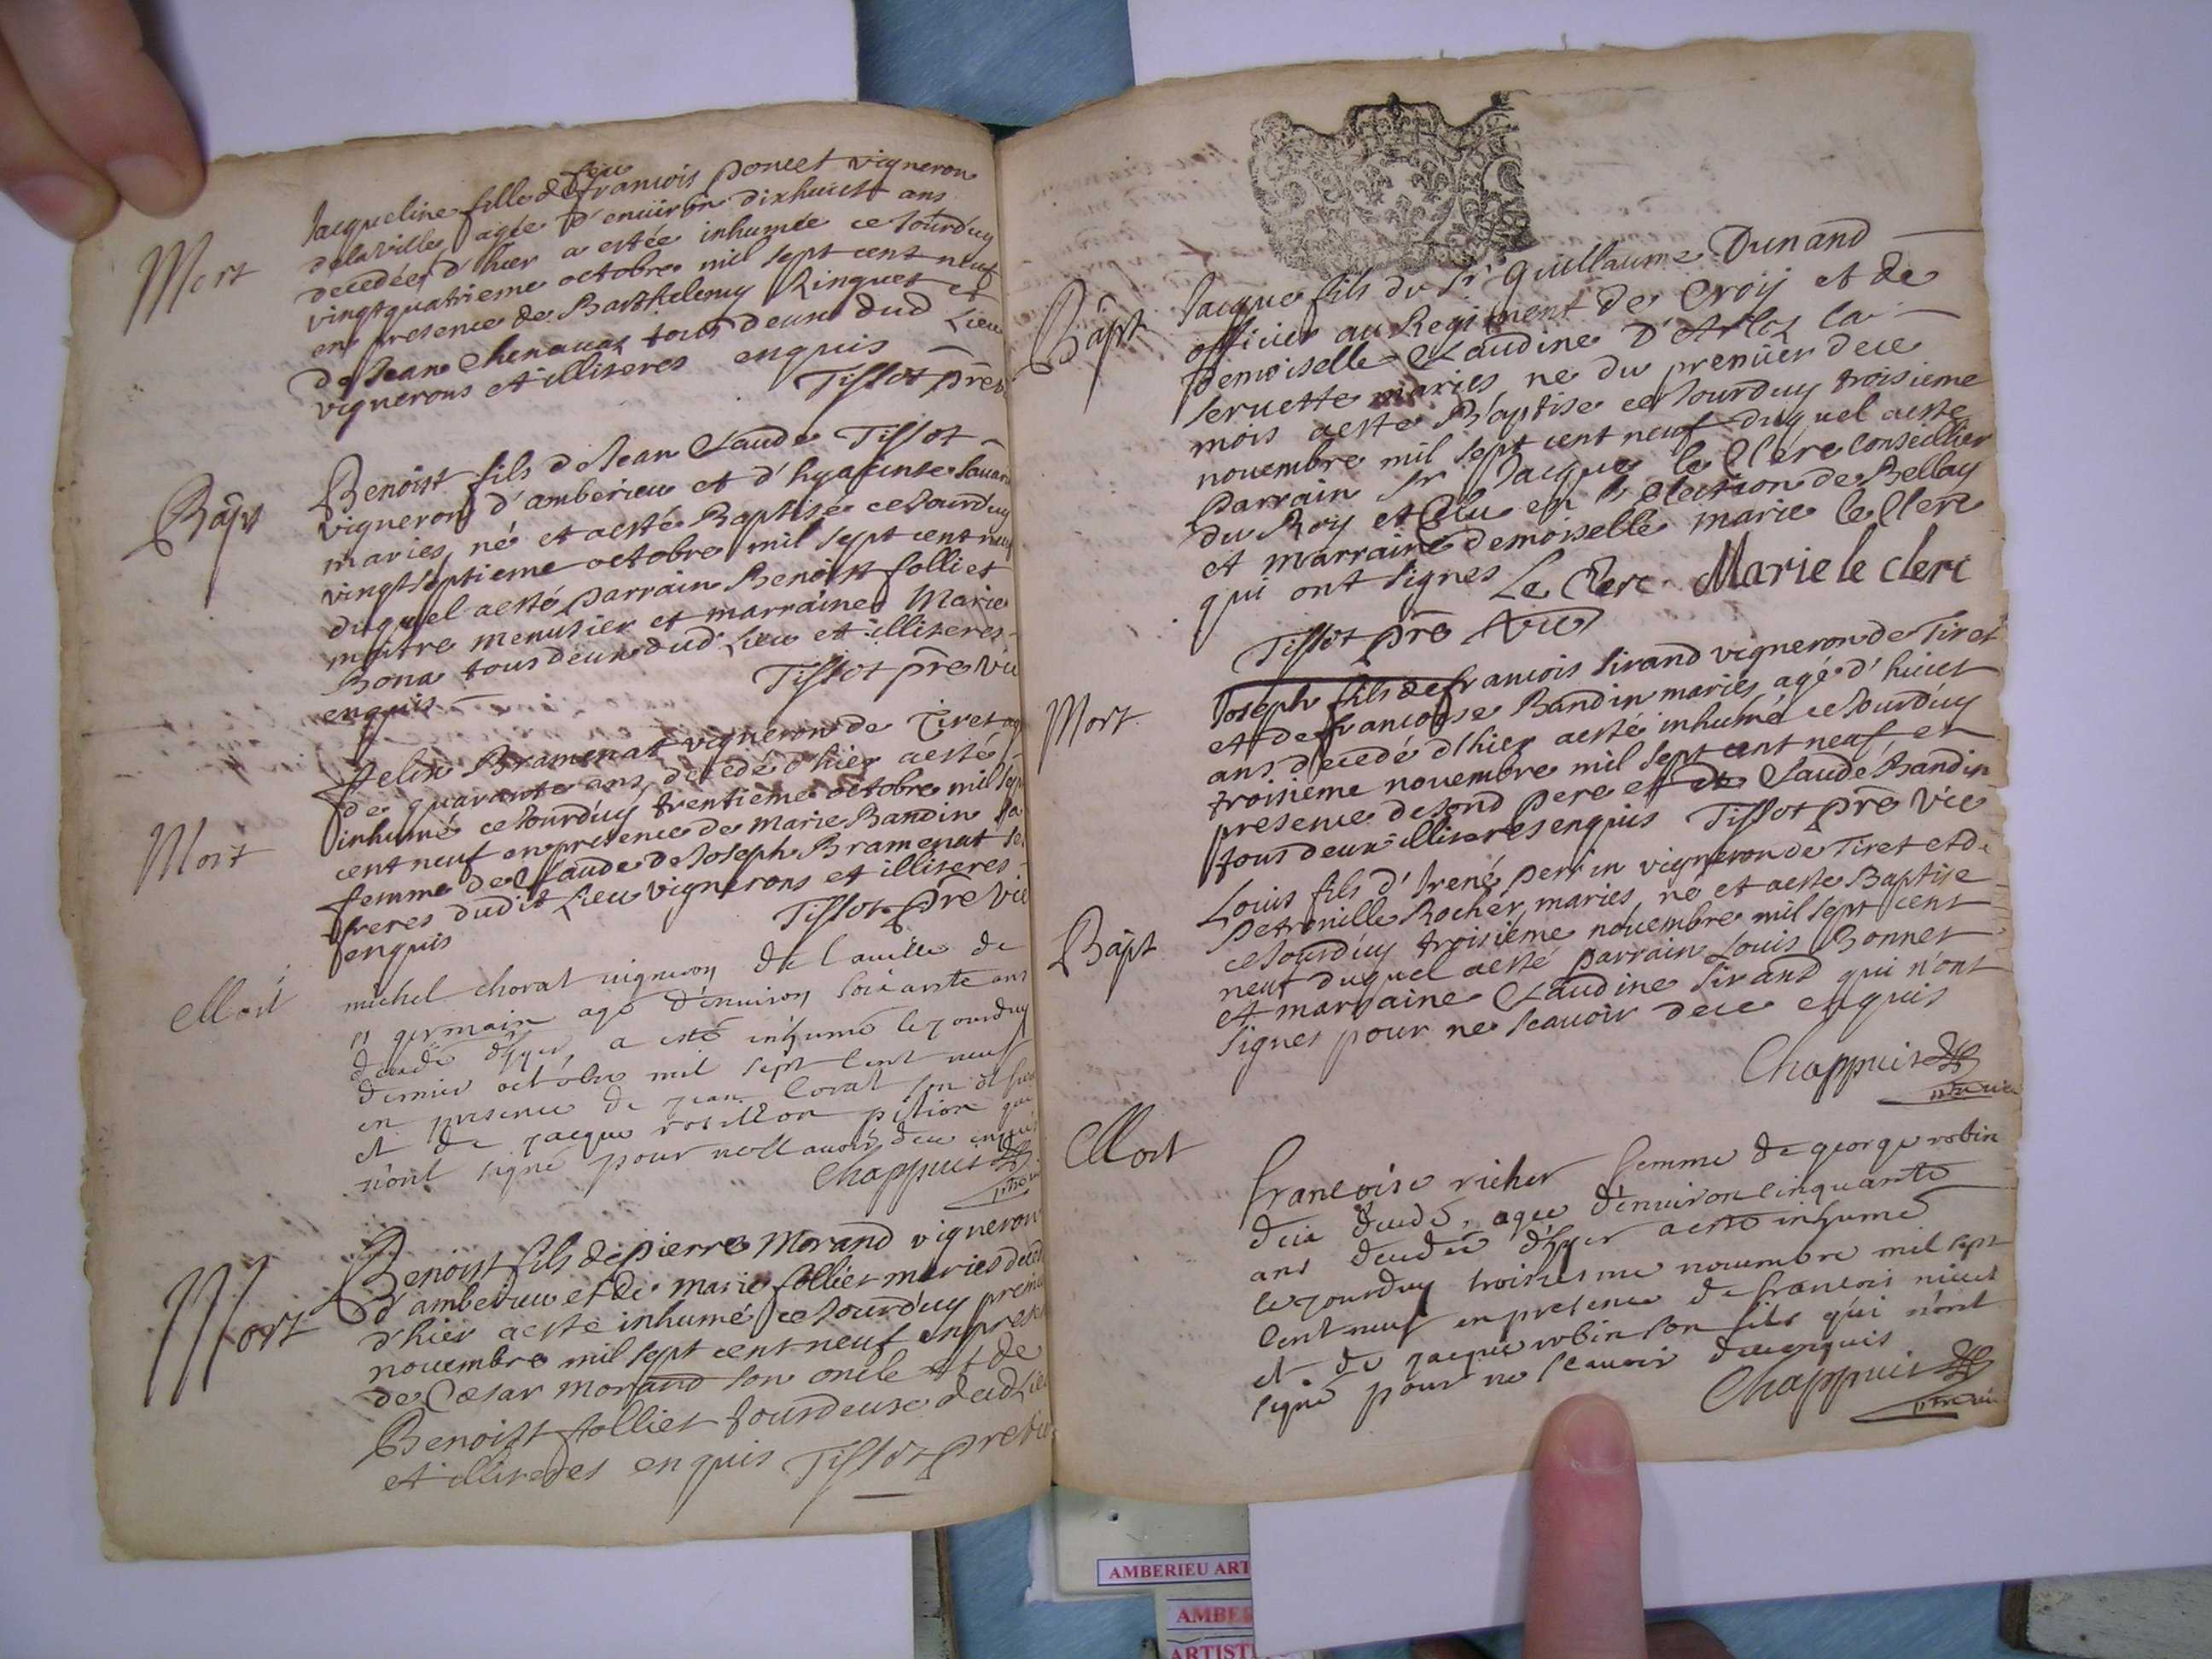 Mort
Jacqueline fille de feu francois poncet vigneron
de la ville, agée d'enuiron dixhuict ans
decedée d'hier a estée inhumée ce Jourd'uy
vingtquatrieme octobre mil sept cent neuf
en presence de Barthelemy Ringuet et
de Jean Chenauaz tous deux dud Lieu
vignerons et illiteres enquis
Tissot pre
Bapt
Benoist fils de Jean Claude Tissot
vigneron d'amberieu et d'hyacinte
maries, né et aesté Baptisé ce Jourd'uy
vingtseptieme octobre mil sept cent neuf
duquel aesté parrain Benoist folliet
maitre menusier et marraine Marie
Bona tous deux dud Lieu et illiteres
enquis
Tissot pre vic
Mort
felix Bramenat vigneron de Tiret
de quarante ans, decedé d'hier aesté
inhumé ce Jourd'uy trentieme octobre mil sept
cent neuf en presence de Marie Bandin sa
femme de Claude de Joseph Bramenat ses
freres dudit Lieu vignerons et illiteres
enquis
Tissot pre vic
Mort
michel chorat vigneron de la uille de
st germain agé d'enuiron soixante ans
decedé d'hyer, a esté inhumé le jourduy
dernier octobre mil sept cent neuf
en presence de jean Corat son
et de jacque rosillon pition qui
n'ont signé pour ne scauoir dece enquis
Chappuis
Mort
Benoist fils de pierre Morand vigneron
d'amberieu et de marie folliet maries decedé
d'hier aesté inhumé ce Jourd'uy premier
nouembre mil sept cent neuf en presence
de Cæsar morand son oncle et de
Benoist folliet tous deux dud Lieu
et illiteres enquis Tissot pre vic
Bapt
Jacque fils du Sr Guillaume Dunand
officier au Regiment de Croy et de
demoiselle Claudine D'Arloz la
seruette maries, né du premier dece
mois aesté Baptise ce Jourduy troisieme
nouembre mil sept cent neuf duquel aesté
parrain Sr Jacque le Clerc conseillier
du Roy et Elu en l'election de Bellay
et marraine demoiselle marie le Clerc
qui ont signes Le Clerc Marie le clerc
Tissot pre vic
Mort
Joseph fils de francois sirand vigneron de Tiret
et de francoise Bandin maries, agé d'huict
ans decedé d'hier aesté inhumé ce Jourd'uy
troisieme nouembre mil sept cent neuf en
presence de sond pere et de Claude Bandin
tous deux illiteres enquis Tissot pre vic
Bapt
Louis fils d'Irené perrin vigneron de Tiret et de
petronille Rocher, maries, né et aesté Baptise
ce Jourd'uy troisieme nouembre mil sept cent
neuf duquel aesté parrain Louis Bonnet
et marraine Claudine sirand qui n'ont
signes pour ne scauoir dece enquis
Chappuis
pre vic
Mort
francoise richer femme de george robin
decedé, agee d'enuiron cinquante
ans decedée d'hyer a esté inhumé
le jourduy troisiesme nouembre mil sept
cent neuf en presence de francois niuet
et de jacque robin son fils qui n'ont
signé pour ne scauoir dece enquis
Chappuis
pre vic
AMBERIEU ART
AMBE
ARTIST